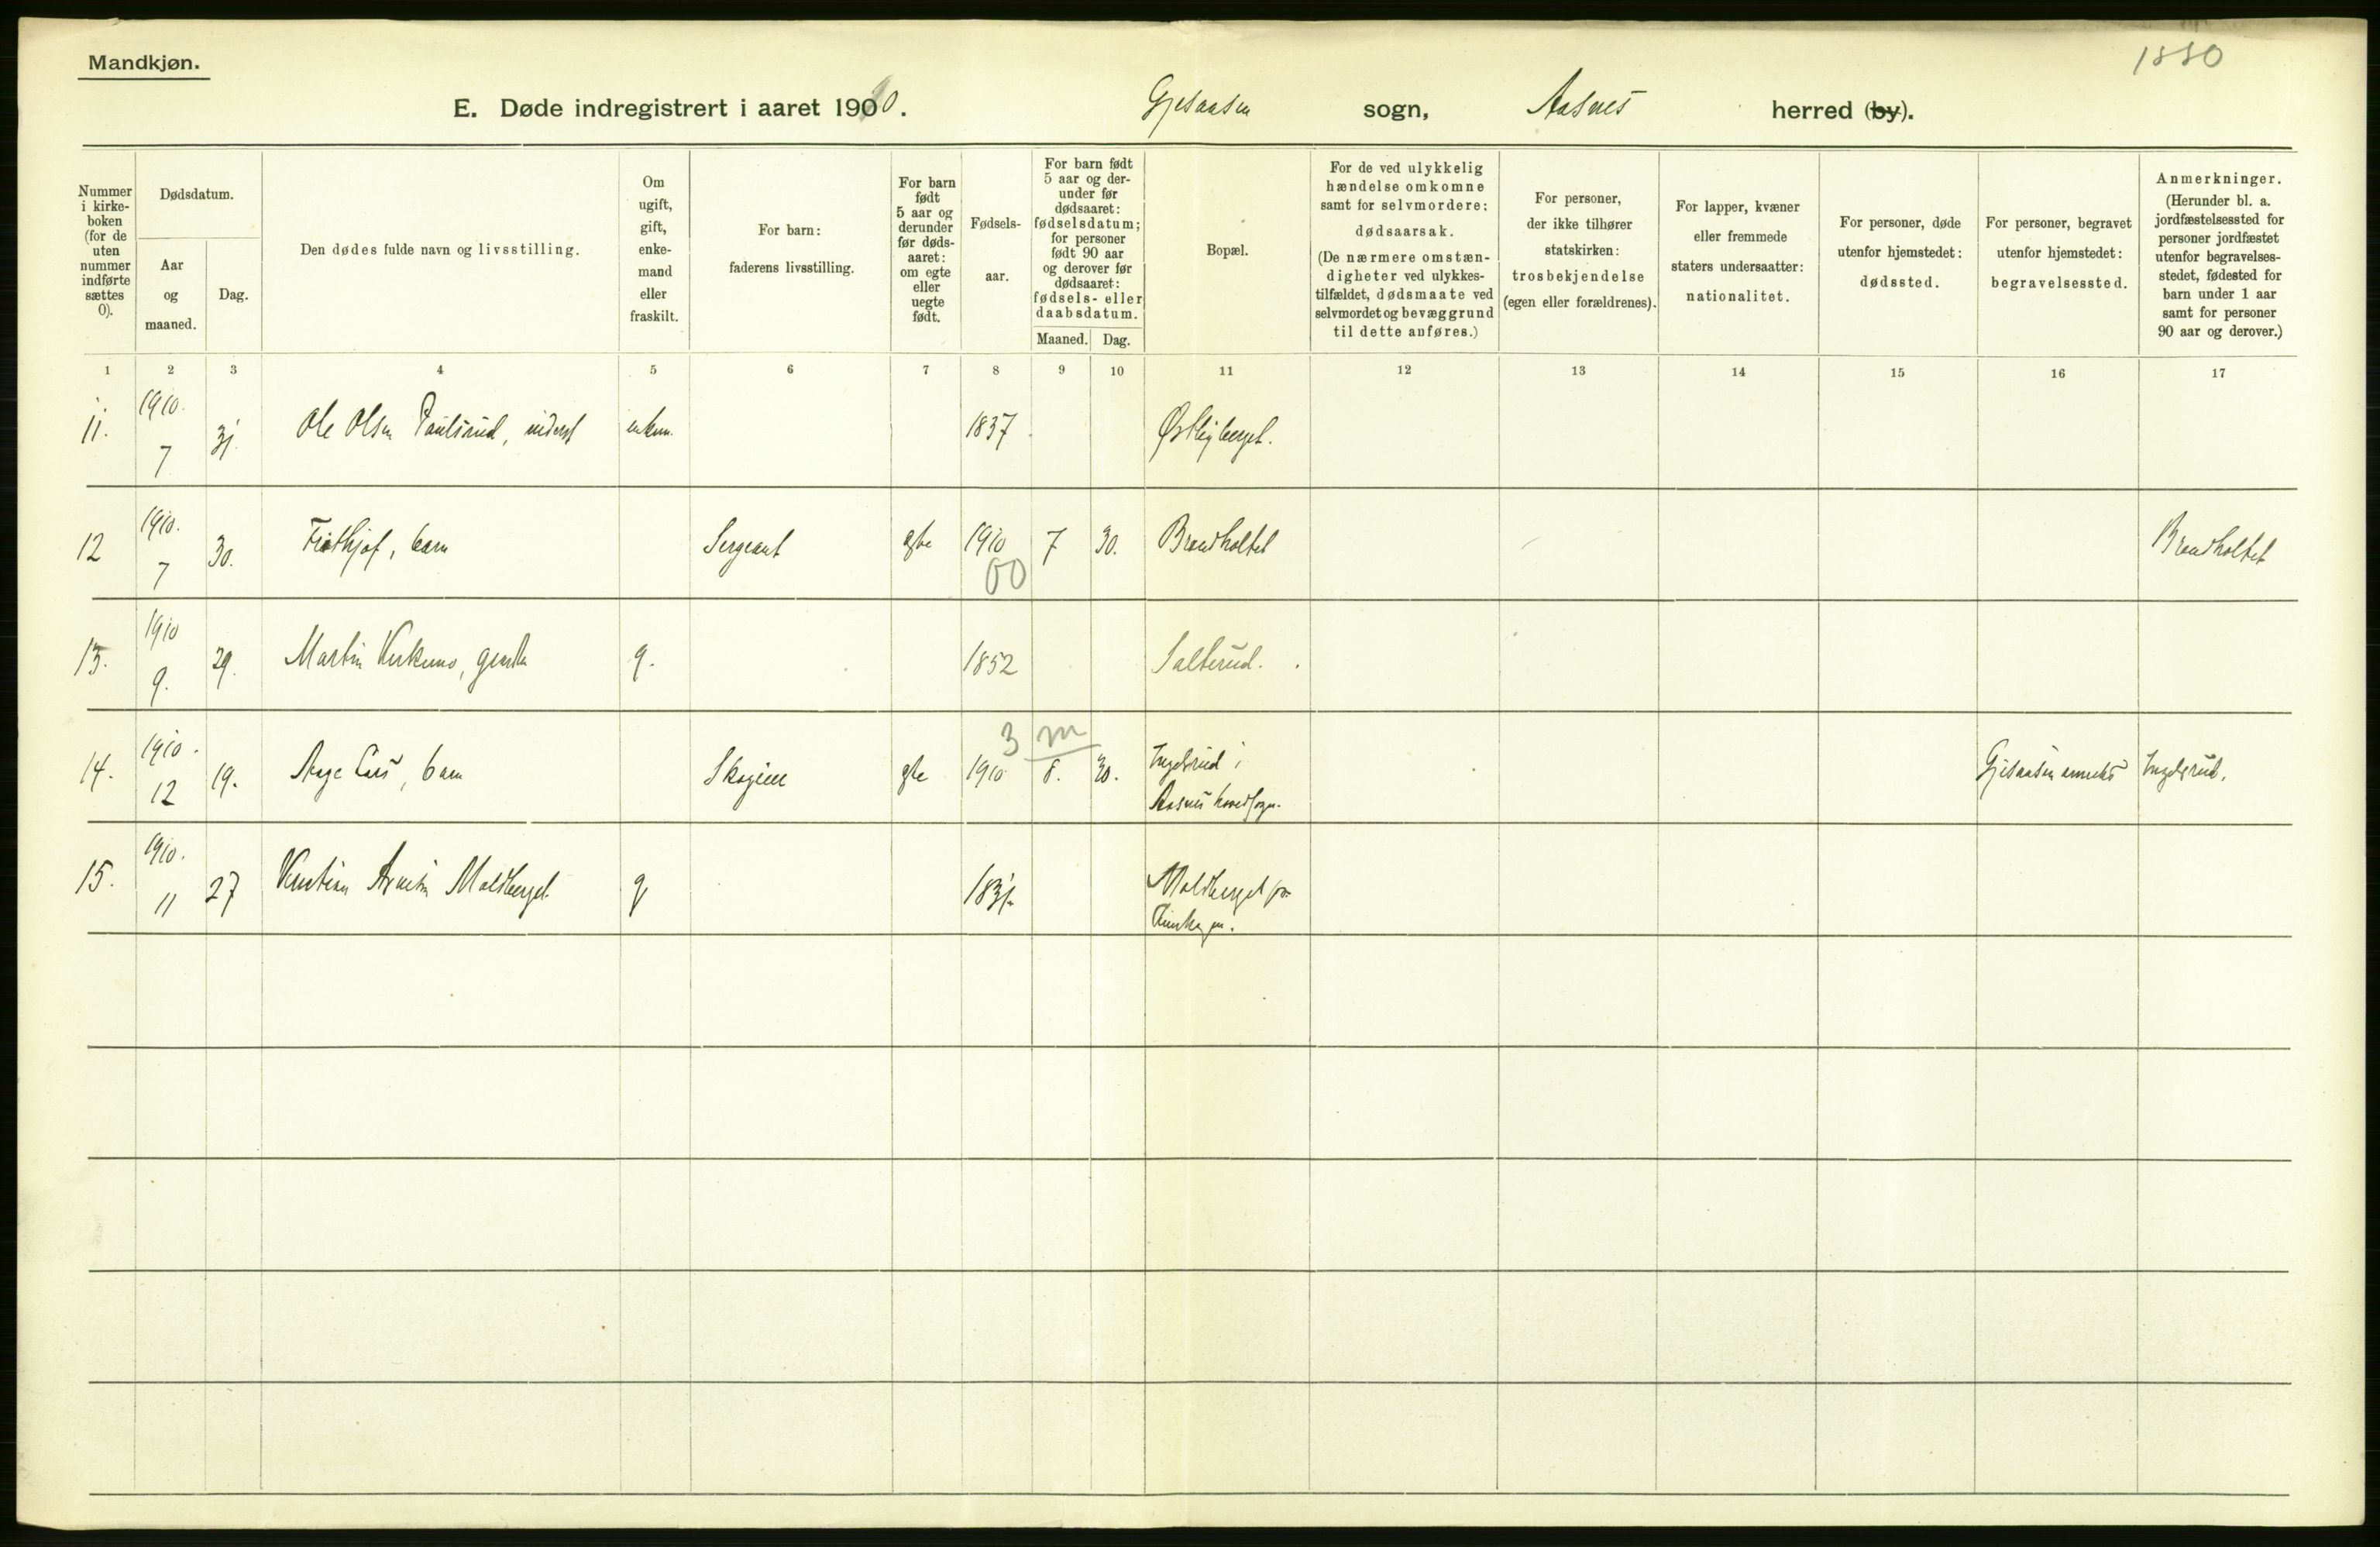 Mandkjøn.
1880
E. Døde indregistrert i aaret 1910. Gjesaasen sogn, Aasnes herred (by).
Nummer i kirke-boken (for de uten nummer indførte sættes 0).
Dødsdatum.
Aar og maaned.
Dag.
Den dødes fulde navn og livsstilling.
Om ugift, gift, enke-mand eller fraskilt.
For barn: faderens livsstilling.
For barn født 5 aar og derunder før døds-aaret: om egte eller uegte født.
Fødsels-aar.
For barn født 5 aar og der-under før dødsaaret: fødselsdatum; for personer født 90 aar og derover før dødsaaret: fødsels- eller daabsdatum.
Maaned.
Dag.
Bopæl.
For de ved ulykkelig hændelse omkomne samt for selvmordere: dødsaarsak. (De nærmere omstæn-digheter ved ulykkes-tilfældet, dødsmaate ved selvmordet og bevæggrund til dette anføres.)
For personer, der ikke tilhører statskirken: trosbekjendelse (egen eller forældrenes).
For lapper, kvæner eller fremmede staters undersaatter: nationalitet.
For personer, døde utenfor hjemstedet: dødssted.
For personer, begravet utenfor hjemstedet: begravelsessted.
Anmerkninger. (Herunder bl. a. jordfæstelsessted for personer jordfæstet utenfor begravelses-stedet, fødested for barn under 1 aar samt for personer 90 aar og derover.)
1 2 3 4 5 6 7 8 9 10 11 12 13 14 15 16 17
11. 1910. 7 31. Ole Olsen Paulsrud, inderst enkem. 1837 Østbyberget.
12 1910. 7 30. Frithjof, barn Sergeant egte 1910 7 30. Brendholtet Brendholtet
00
13. 1910 9. 29. Martin g. 1852 Salterud.
3 m
14. 1910. 12 19. Aage barn egte 1910 8. 30. Ingelsrud i Gjesaasen anneks Ingelsrud.
Aasnes hovedsogn.
15. 1910. 11 27 Kristian Moldberget g 1831. Moldberget